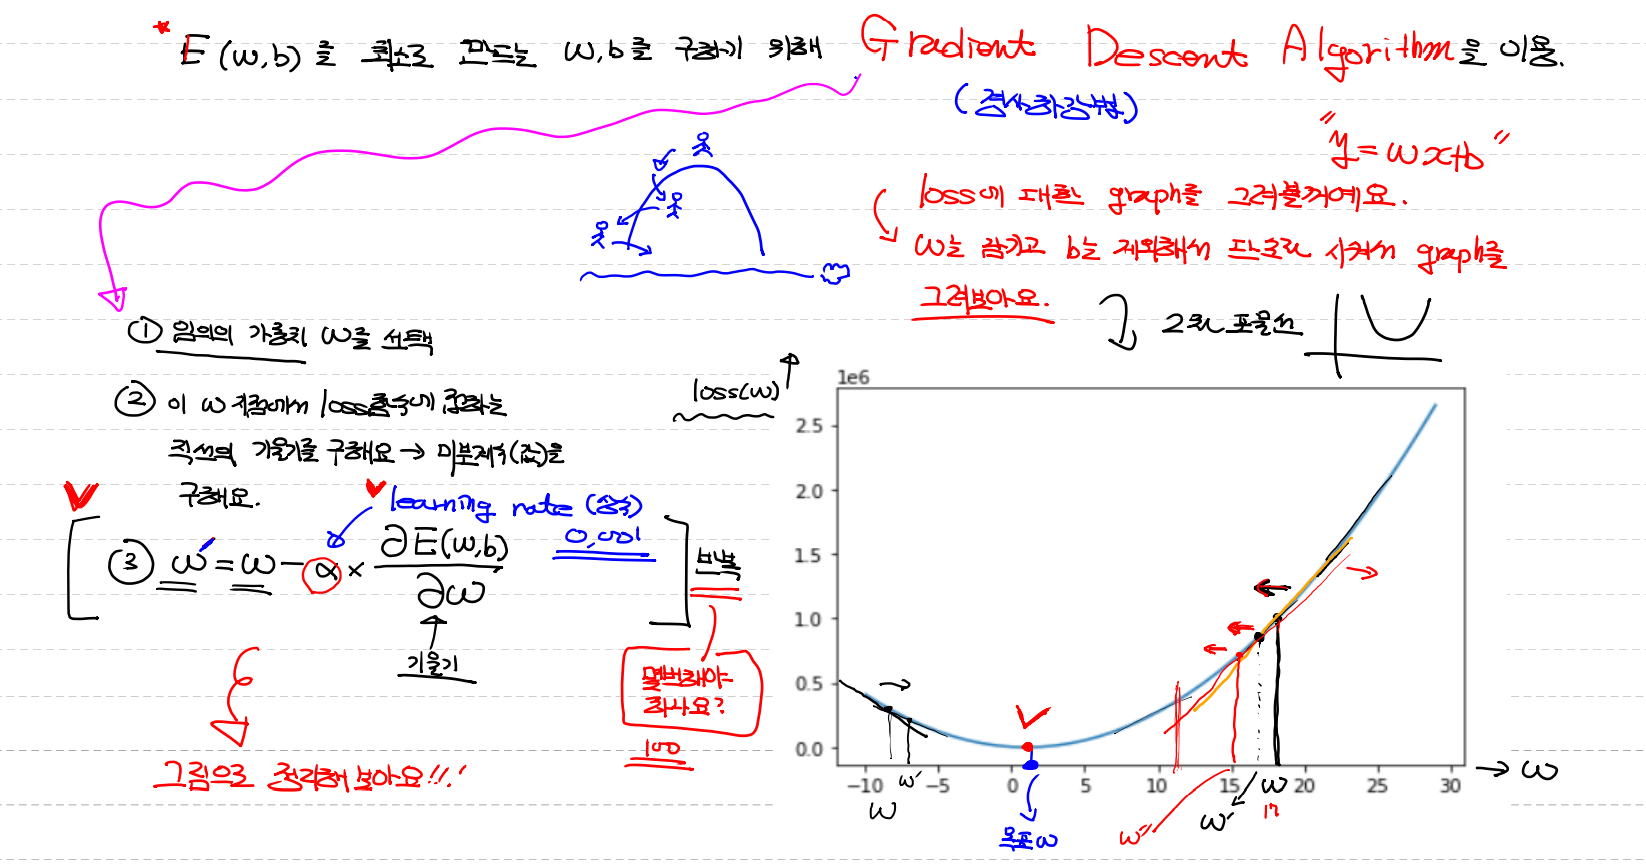 * E(w,b)를 최소로 만드는 w,b를 구하기 위해 Gradient Descent Algorithm을 이용.
(경사하강법)
"y = wx+b"
loss에 대한 graph를 그려볼꺼예요.
w는 남기고 b는 제외해서 단순화 시켜서 graph를
그려보아요.
2차 포물선
① 임의의 가중치 w를 선택
② 이 w 지점에서 loss함수에 접하는
직선의 기울기를 구해요 → 미분계수(값)을
구해요.
learning rate (상수)
0.001
③ w' = w - α × ∂E(w,b) / ∂w
반복
기울기
몇번해야
하나요?
100
그림으로 정리해 보아요!!!
loss(w)
1e6
2.5
2.0
1.5
1.0
0.5
0.0
-10 -5 0 5 10 15 20 25 30
→ w
w w'
목표 w
w'' w' w
17